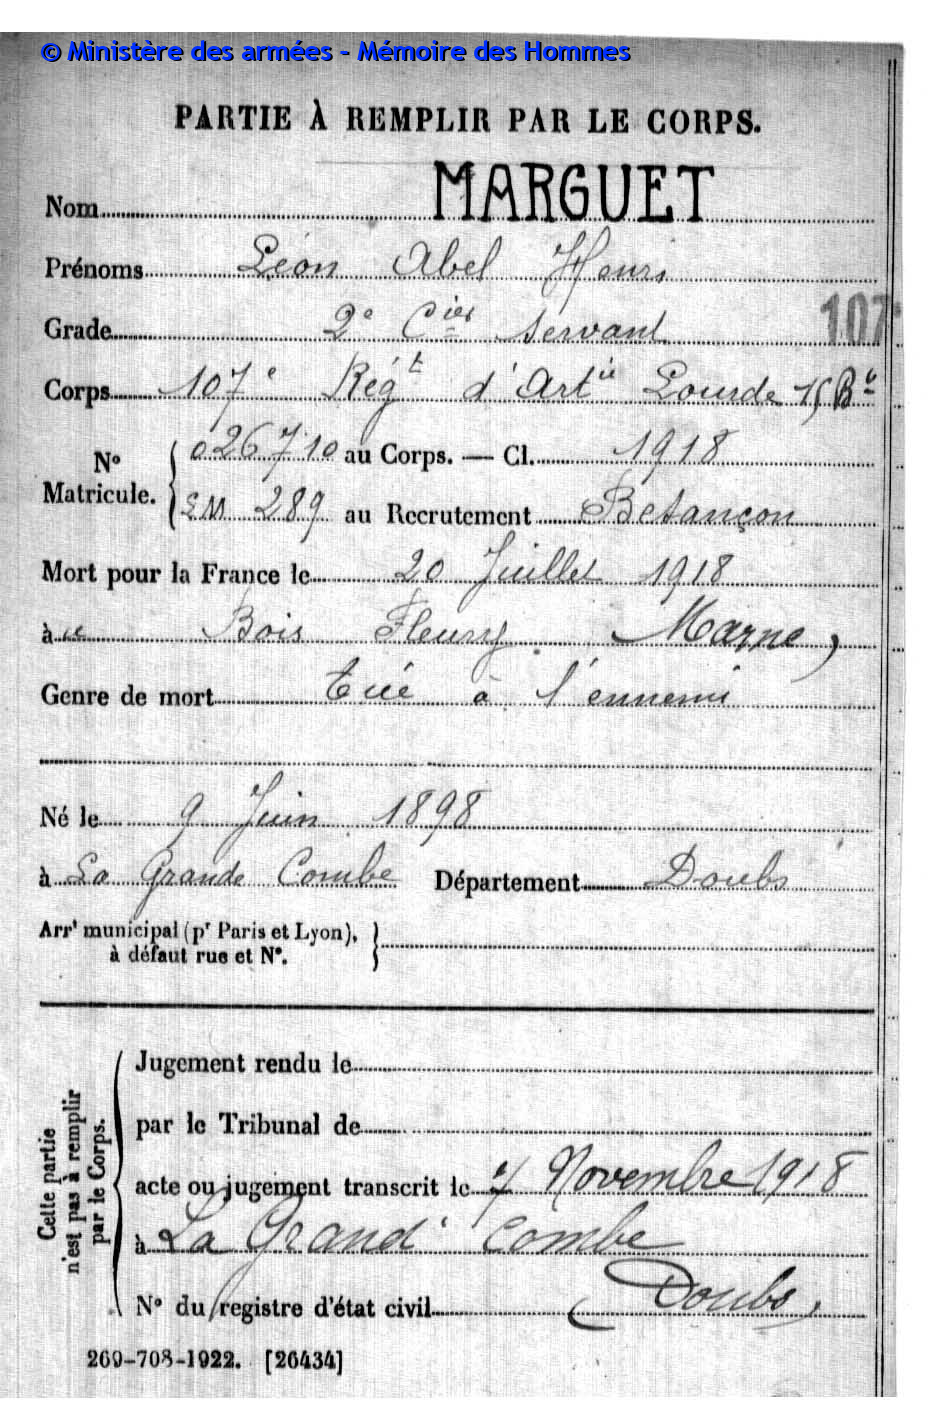 © Ministère des armées - Mémoire des Hommes
PARTIE À REMPLIR PAR LE CORPS.
Nom MARGUET
Prénoms Léon Abel Henri
Grade 2e Cier servant
107
Corps 107e Régt d'Artie Lourde 15 Bie
No Matricule. 026710 au Corps. — Cl. 1918
SM 289 au Recrutement Besançon
Mort pour la France le 20 Juillet 1918
à u Bois Fleury (Marne)
Genre de mort tué à l'ennemi
Né le 9 Juin 1898
à La Grande Combe Département Doubs
Arrt municipal (pr Paris et Lyon),
à défaut rue et N°.
Cette partie n'est pas à remplir par le Corps.
Jugement rendu le
par le Tribunal de
acte ou jugement transcrit le 7 Novembre 1918
à La Grand' Combe
N° du registre d'état civil (Doubs)
269-708-1922. [26434]